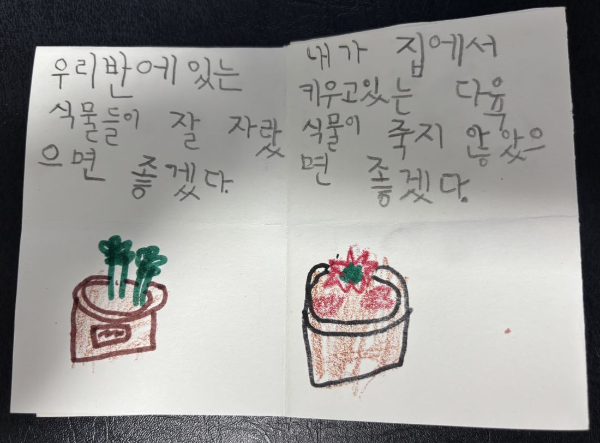 우리반에 있는
식물들이 잘 자랐
으면 좋겠다.
내가 집에서
키우고있는 다육
식물이 죽지 않았으
면 좋겠다.